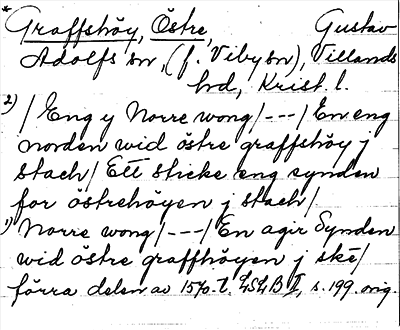 * Graffshöy, Östre, Gustav
Adolfs sn, (f. Viby sn), Villands
hd, Krist. l.
2) / Eng y Norre wong / --- / En eng
norden wid östre graffshöy j
stach / Ett sticke eng synden
for östrehöyen j stach /
1) Norre wong / --- / En agir Synden
wid östre graffhöyen j skē /
förra delen av 15/0. t. LSLB II, s. 199. orig.